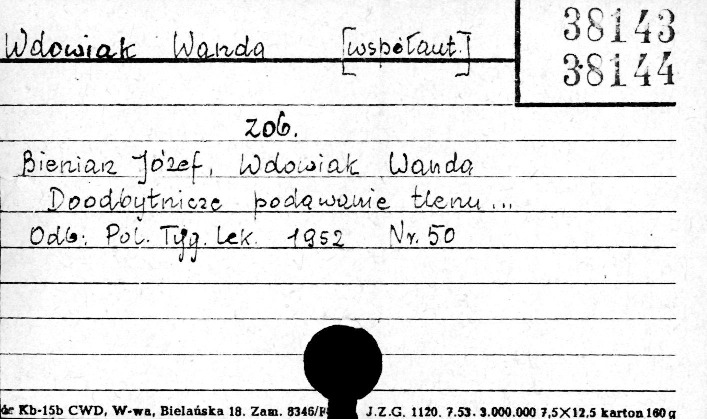 Wdowiak Wanda [współaut.]
38143
38144
zob.
Bienian Józef, Wdowiak Wanda
Doodbytnicze podawanie tlenu...
Odb: Pol. Tyg. Lek. 1952 Nr. 50
Kb-15b CWD, W-wa, Bielańska 18. Zam. 8346/ J.Z.G. 1120. 7.53. 3.000.000 7,5×12,5 karton 160 g